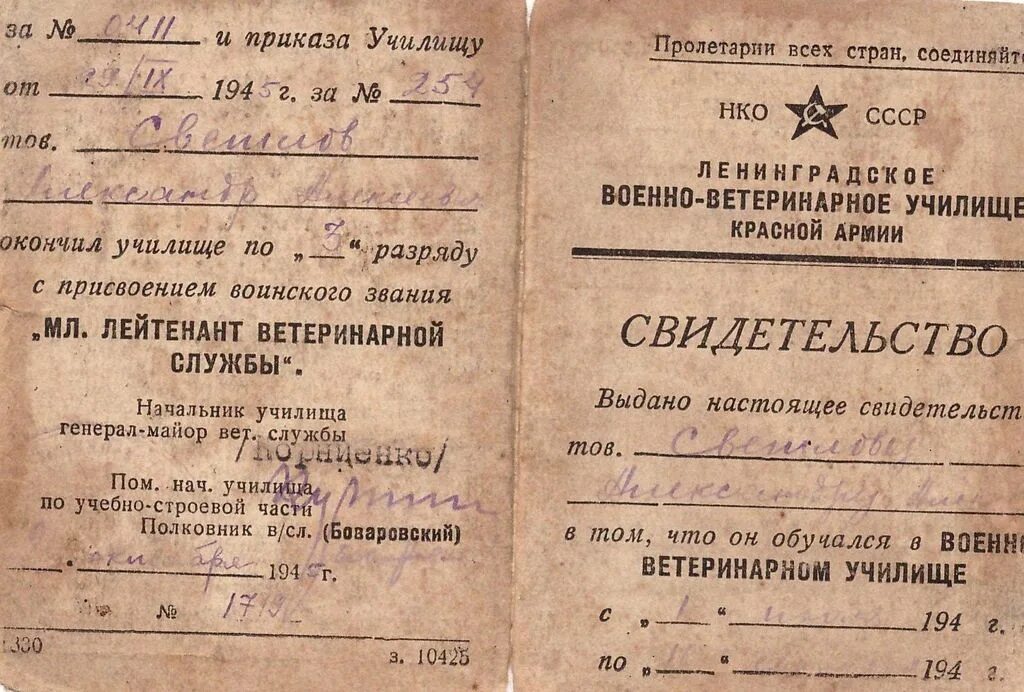 за № 0411 и приказа Училищу
от 29/IX 1945г. за № 254
тов. Светлов
Александр
окончил училище по „3“ разряду
с присвоением воинского звания
„МЛ. ЛЕЙТЕНАНТ ВЕТЕРИНАРНОЙ
СЛУЖБЫ“.
Начальник училища
генерал-майор вет. службы
/Корниенко/
Пом. нач. училища
по учебно-строевой части
Полковник в/сл. (Боваровский)
октября 1945г.
№
з. 10425
Пролетарии всех стран, соединяйте
НКО СССР
ЛЕНИНГРАДСКОЕ
ВОЕННО-ВЕТЕРИНАРНОЕ УЧИЛИЩЕ
КРАСНОЙ АРМИИ
СВИДЕТЕЛЬСТВО
Выдано настоящее свидетельст
тов. Светлову
Александру
в том, что он обучался в ВОЕНН
ВЕТЕРИНАРНОМ УЧИЛИЩЕ
с „1“ 194 г.
по „ “ 194 г.